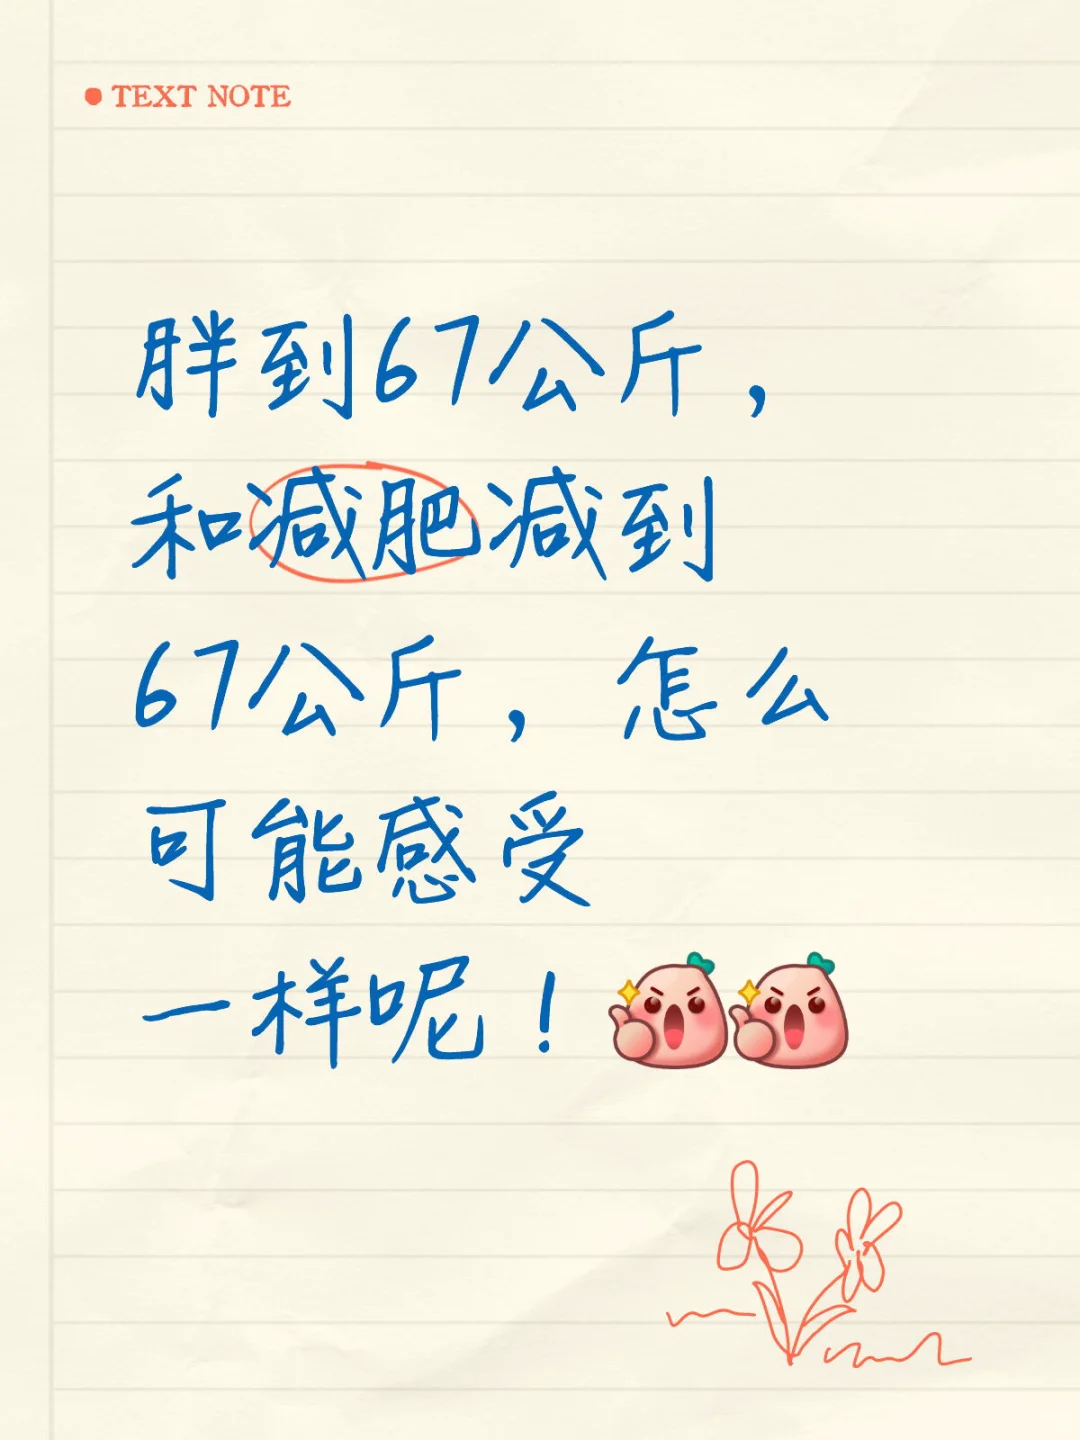 TEXT NOTE
胖到67公斤，
和减肥减到
67公斤，怎么
可能感受
一样呢！